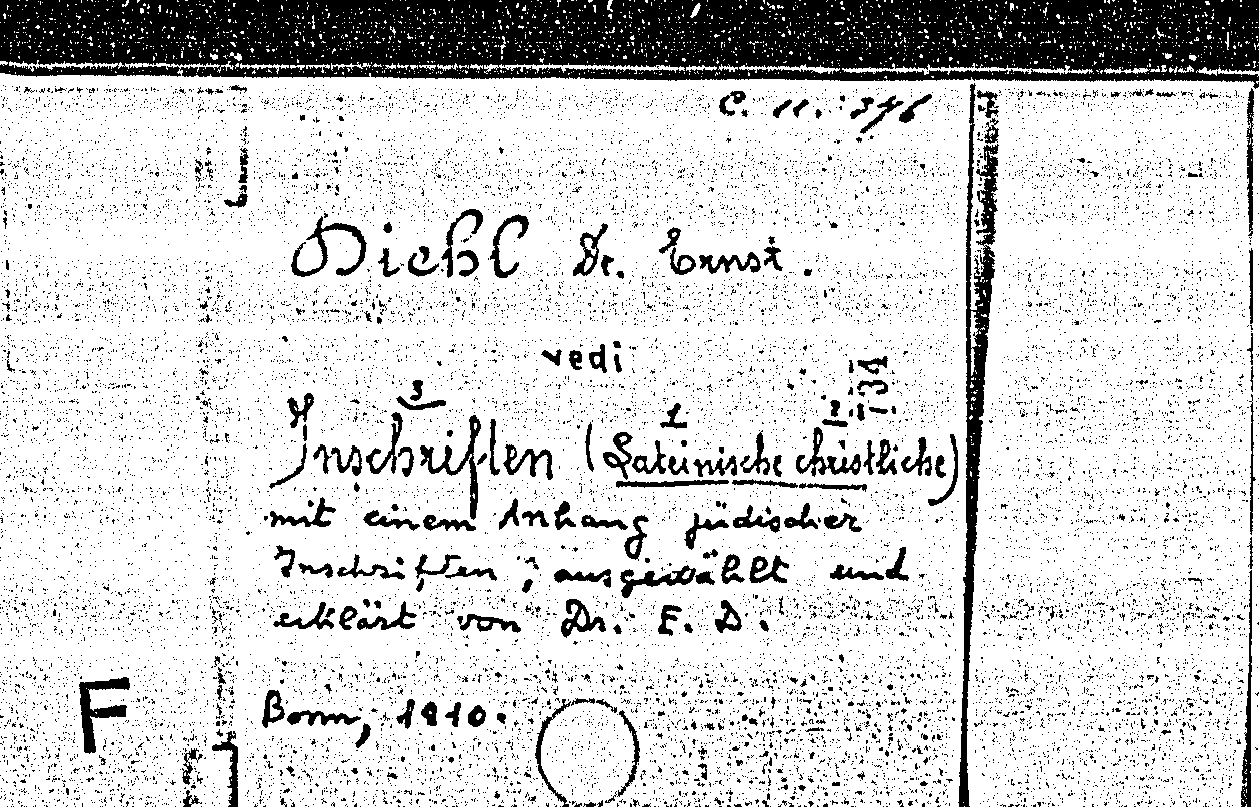 C. 11. : 376
Diehl Dr. Ernst.
vedi
134
3 1 2
Inschriften (Lateinische christliche)
mit einem Anhang jüdischer
Inschriften; ausgewählt und
erklärt von Dr. E. D.
F
Bonn, 1910.